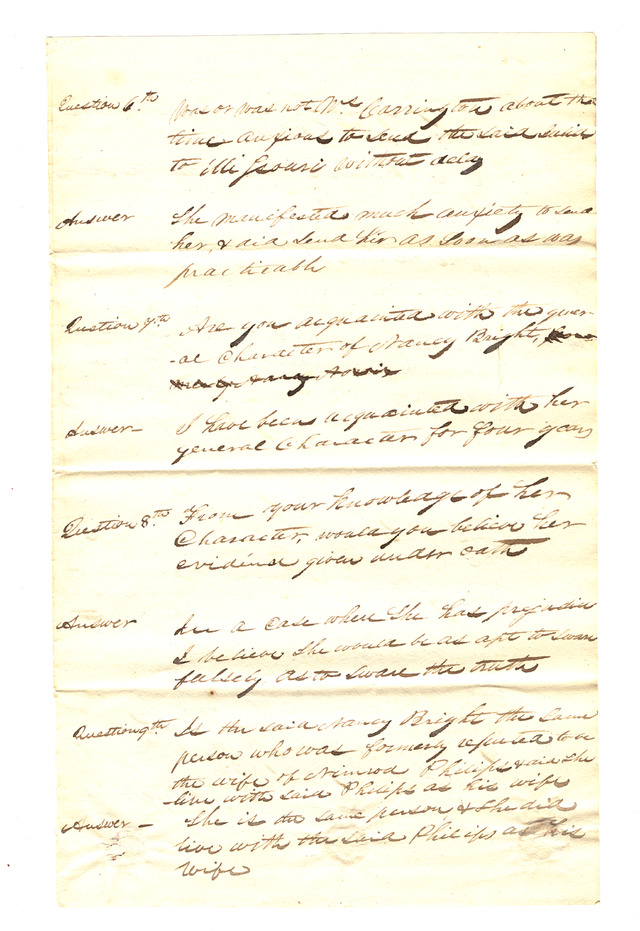 Question 6th Was or was not Mrs Carrington about the
time anxious to send the said
to Missouri without delay
Answer She manifested much anxiety to send
her, & did send her as soon as was
practicable
Question 7th Are you acquainted with the gener
-al Character of Nancy Bright,
Answer— I have been acquainted with her
general Character for four years
Question 8th From your knowledge of her
Character, would you believe her
evidence given under oath
Answer In a case where she has prejudice
I believe she would be as apt to sware
falsely as to sware the truth
Question 9th Is the said Nancy Bright the same
person who was formerly reputed to be
the wife of Nimrod Philips & did she
live with said Philips as his wife
Answer— She is the same person & she did
live with the said Philips as his
wife